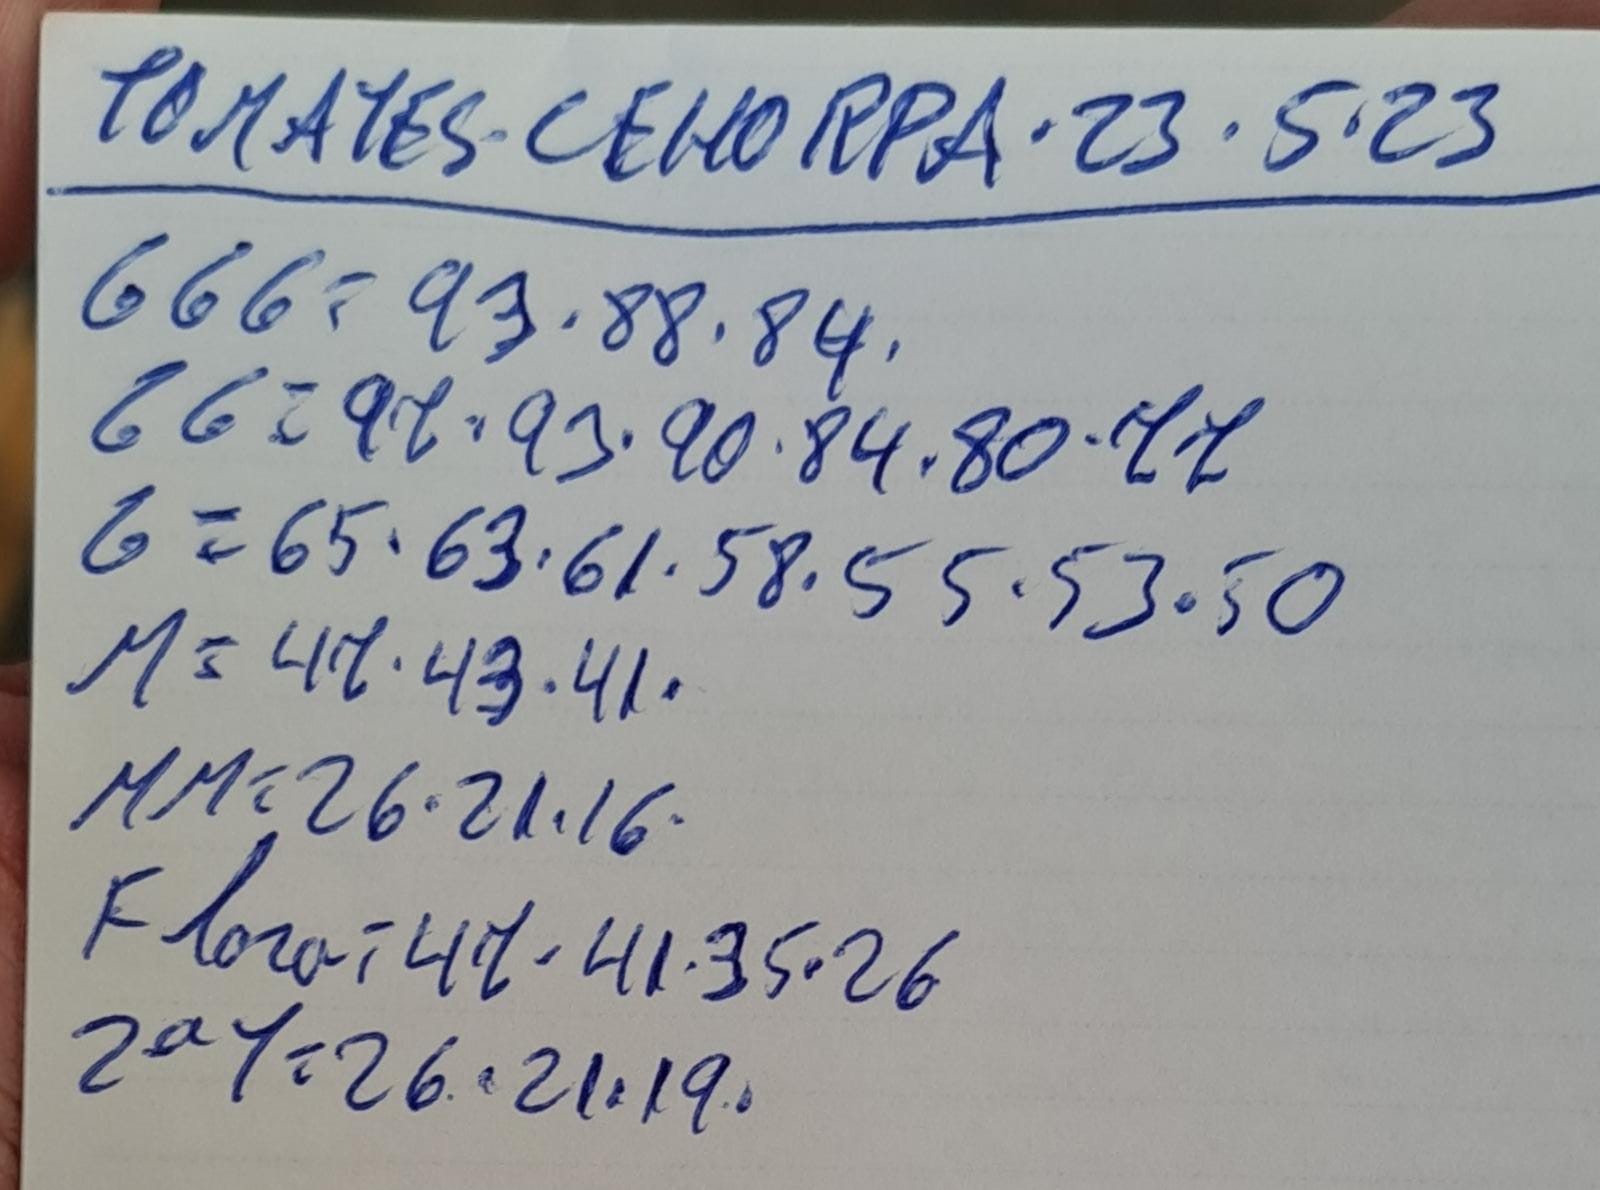 TOMATES-CEHORPA·23·5·23
GGG=93·88·84.
GG=97·93·90·84.80·77
G=65·63·61·58·55·53·50
M=47·43·41.
MM=26·21·16.
Flora=47·41·35·26
2ªT=26·21·19.